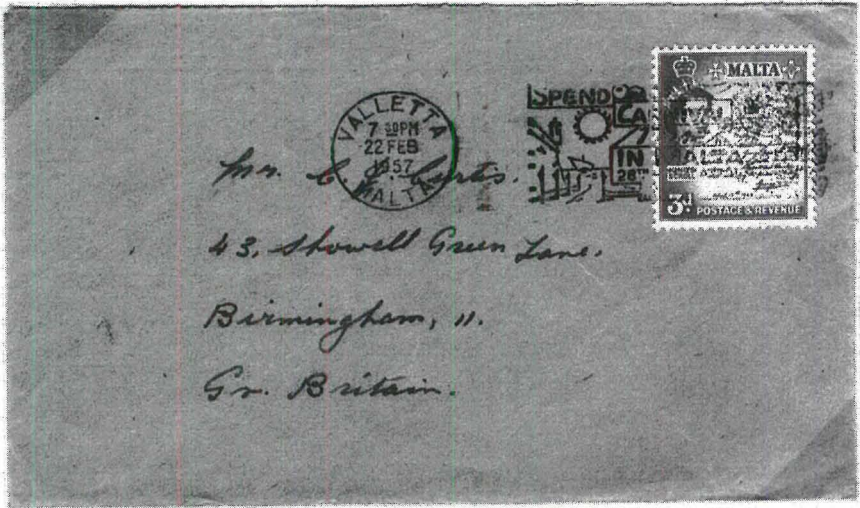 VALLETTA
7 30PM
22 FEB
1957
MALTA
SPEND
IN
28TH
MALTA
3d. POSTAGE & REVENUE
Mr. C. Curtis.
43, Showell Green Lane.
Birmingham, 11.
Gr. Britain.